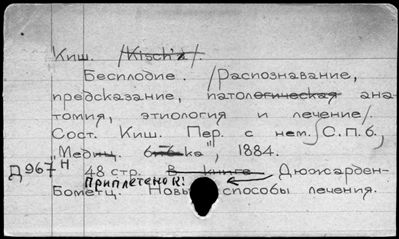 Киш. /Kisch'a/.
Бесплодие. /Распознавание,
предсказание, патологическая ана-
томия, этиология и лечение/.
Сост. Киш. Пер. с нем. С.П.б.,
"Медиц. б-ка", 1884.
Д967Н 48 стр. В книге Дюжарден-
Приплетено к:
Бометц. Новые способы лечения.